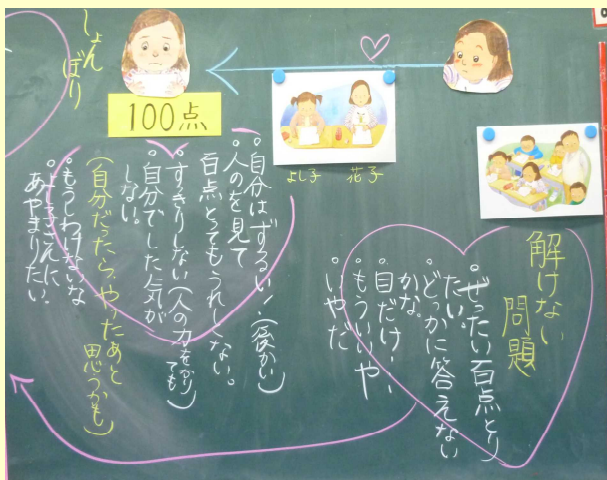 解けない
問題
・ぜったい百点とり
たい。
・どっかに答えない
かな。
・目だけ・・
・もういいや、
・いやだ
よし子
花子
100点
しょん
ぼり
・自分はずるい!(後かい)
・人のを見て
百点とってもうれしくない。
・すっきりしない(人の力をかりても)
・自分でした気が
しない。
(自分だったら、やったあと
思うかも)
・もうしわけないな
・よし子さんに
あやまりたい。